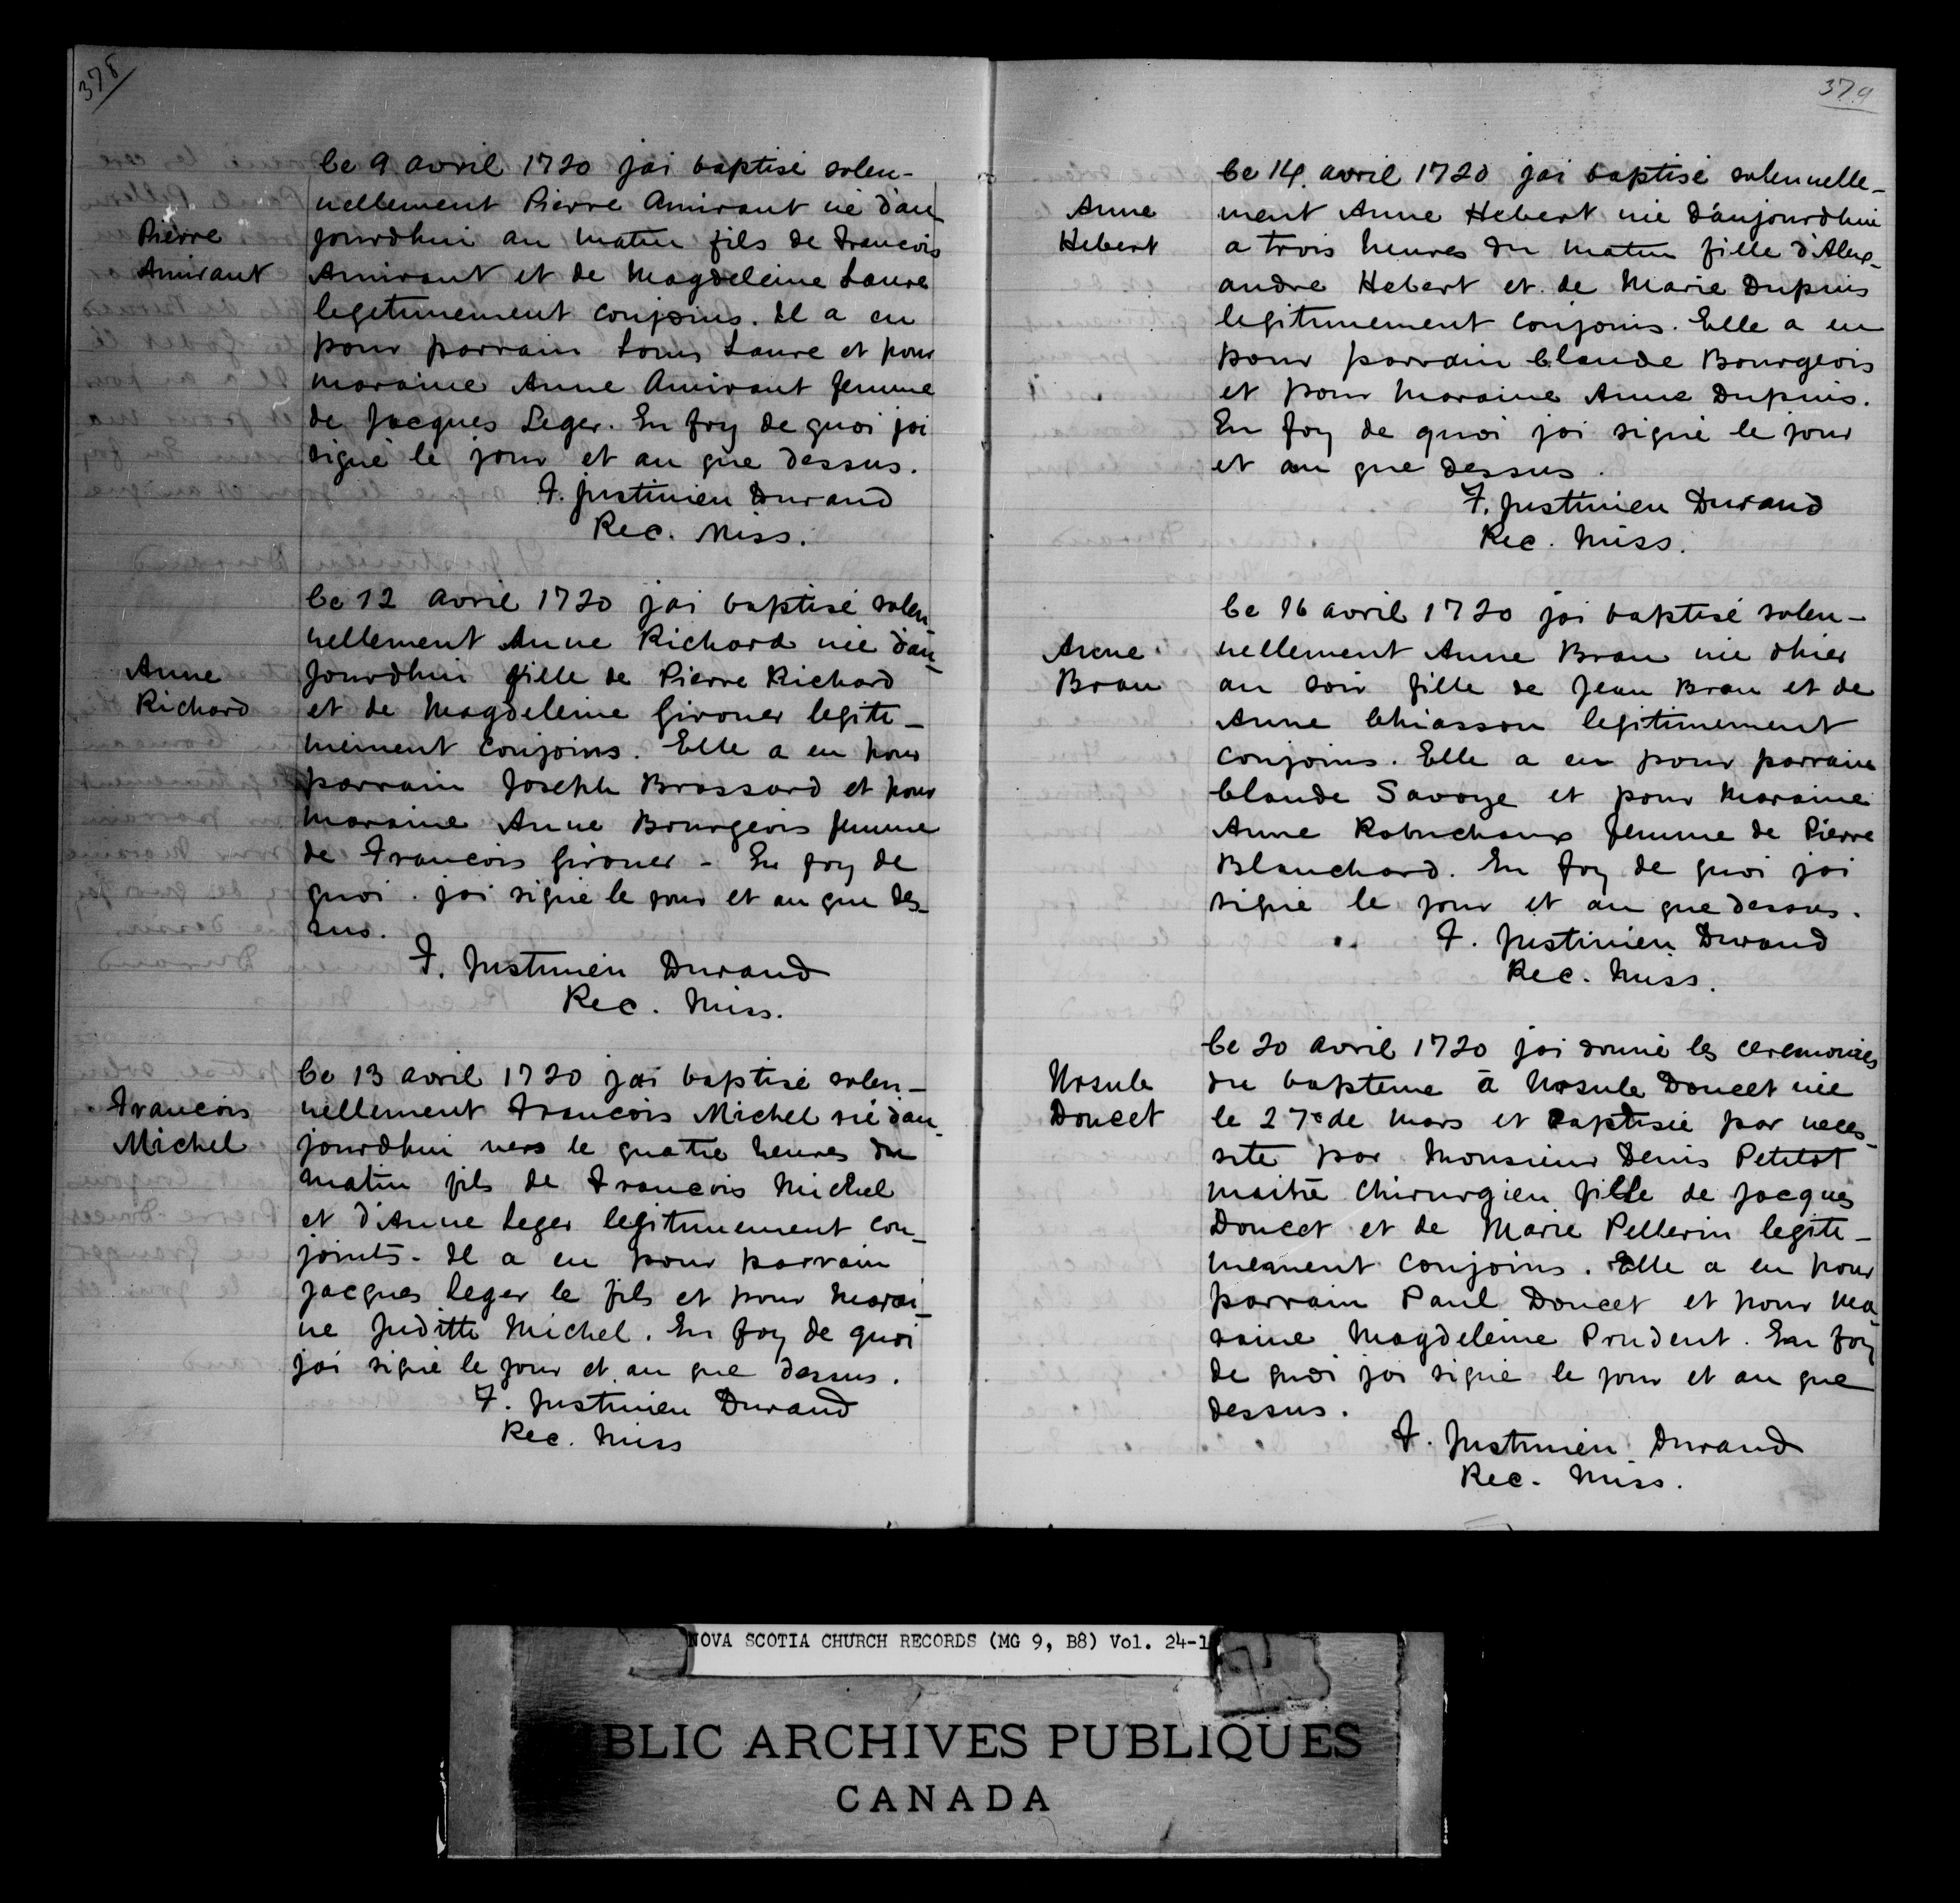 378
Pierre
Amirant
Ce 9 avril 1720 jai baptisé solen-
nellement Pierre Amirant né dau
jourdhui au matin fils de Francois
Amirant et de Magdeleine Laure
legitimement conjoins. Il a eu
pour parrain Louis Laure et pour
maraine Anne Amirant femme
de Jacques Leger. En foy de quoi jai
signé le jour et an que dessus.
F. Justinien Durand
Rec. Miss.
Anne
Richard
Ce 12 avril 1720 jai baptisé solen-
nellement Anne Richard née dau-
jourdhui fille de Pierre Richard
et de Magdeleine Girouer legiti-
mement conjoins. Elle a eu pour
parrain Joseph Brossard et pour
maraine Anne Bourgeois femme
de Francois Girouer - En foy de
quoi. jai signé le jour et an que des-
sus.
F. Justinien Durand
Rec. Miss.
Francois
Michel
Ce 13 avril 1720 jai baptisé solen-
nellement Francois Michel né dau-
jourdhui vers le quatre heures du
matin fils de Francois Michel
et d'Anne Leger legitimement con-
joints. Il a eu pour parrain
Jacques Leger le fils et pour marai-
ne Juditte Michel. En foy de quoi
jai signé le jour et an que dessus.
F. Justinien Durand
Rec. Miss
379
Anne
Hebert
Ce 14 avril 1720 jai baptisé solennelle-
ment Anne Hebert née d'aujourdhui
a trois heures du matin fille d'Alex-
andre Hebert et de Marie Dupuis
legitimement conjoins. Elle a eu
pour parrain Claude Bourgeois
et pour Maraine Anne Dupuis.
En foy de quoi jai signé le jour
et an que dessus.
F. Justinien Durand
Rec. Miss.
Anne
Brau
Ce 16 avril 1720 jai baptisé solen-
nellement Anne Brau née dhier
au soir fille de Jean Brau et de
Anne Chiasson legitimement
conjoins. Elle a eu pour parrain
Claude Savoye et pour Maraine
Anne Robuchaux femme de Pierre
Blanchard. En foy de quoi jai
signé le jour et an que dessus.
F. Justinien Durand
Rec. Miss.
Ursule
Doucet
Ce 20 avril 1720 jai donné les ceremonies
du bapteme à Ursule Doucet née
le 27e de Mars et baptisée par neces-
sité par Monsieur Denis Petitot
maitre chirurgien fille de Jacques
Doucet et de Marie Pellerin legiti-
mement conjoins. Elle a eu pour
parrain Paul Doucet et pour ma
raine Magdeleine Prudent. En foy
de quoi jai signé le jour et an que
dessus.
F. Justinien Durand
Rec. Miss.
NOVA SCOTIA CHURCH RECORDS (MG 9, B8) Vol. 24-1
BLIC ARCHIVES PUBLIQUES
CANADA